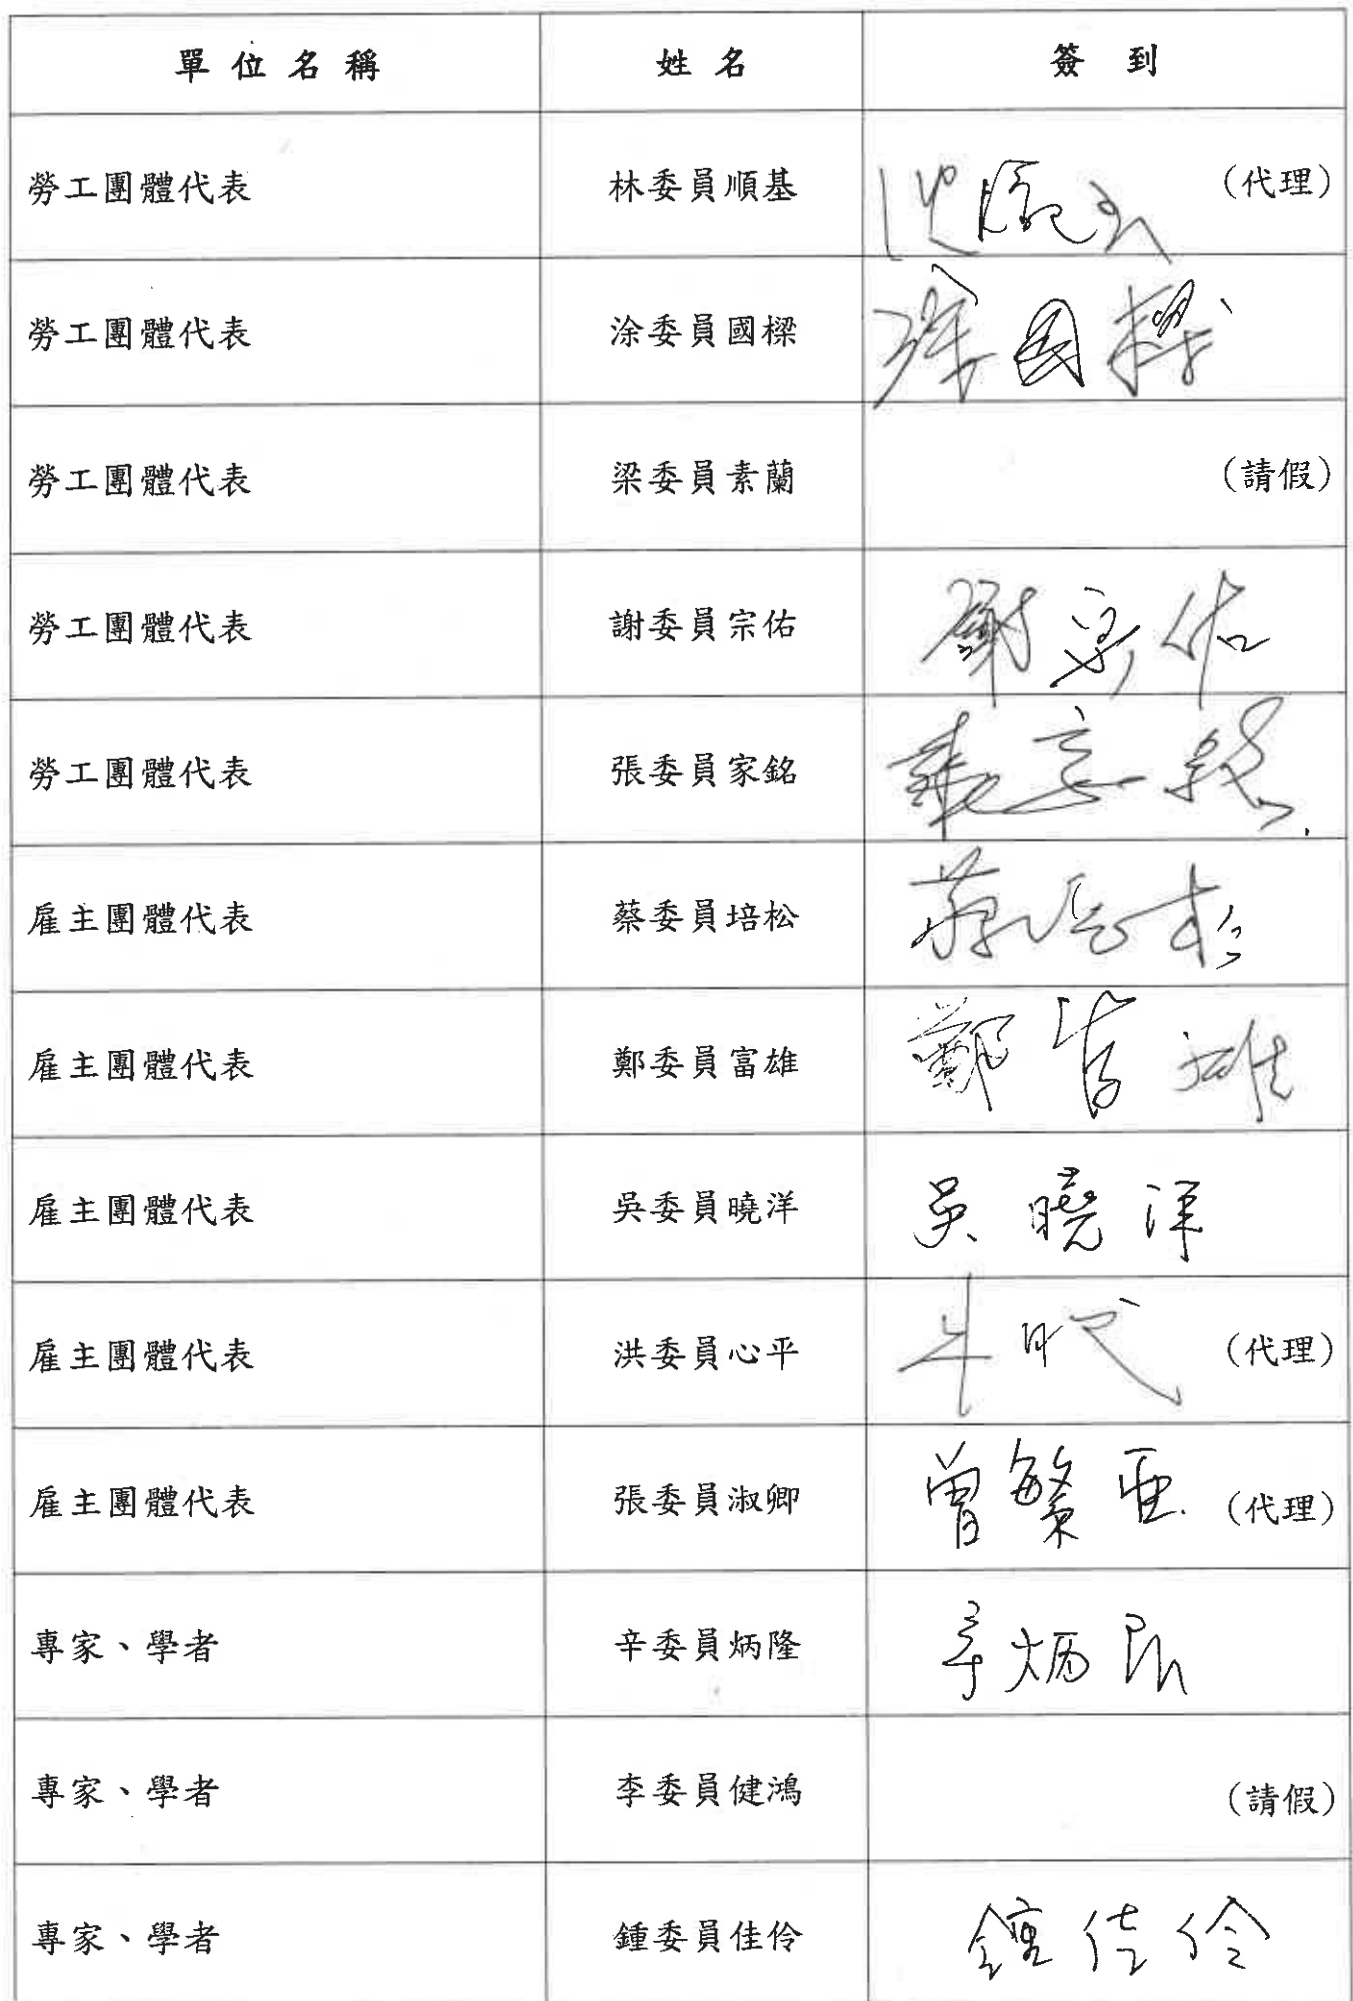 單位名稱 姓名 簽到
勞工團體代表 林委員順基 (代理)
勞工團體代表 涂委員國樑 涂國樑
勞工團體代表 梁委員素蘭 (請假)
勞工團體代表 謝委員宗佑 謝宗佑
勞工團體代表 張委員家銘
雇主團體代表 蔡委員培松 蔡培松
雇主團體代表 鄭委員富雄 鄭富雄
雇主團體代表 吳委員曉洋 吳曉洋
雇主團體代表 洪委員心平 (代理)
雇主團體代表 張委員淑卿 曾繁亜 (代理)
專家、學者 辛委員炳隆 辛炳隆
專家、學者 李委員健鴻 (請假)
專家、學者 鍾委員佳伶 鍾佳伶